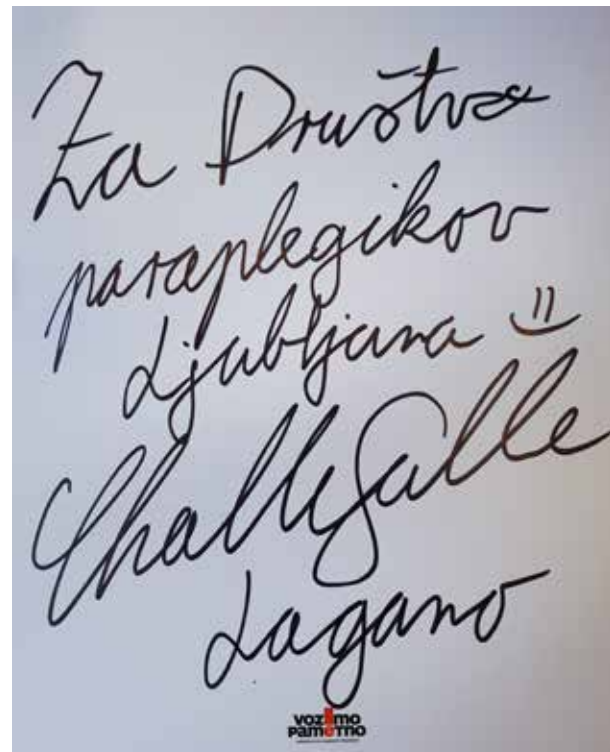 Za Društvo
paraplegikov
Ljubljana =)
ChallySalle
Lagano
VOZ!MO
PAMETNO